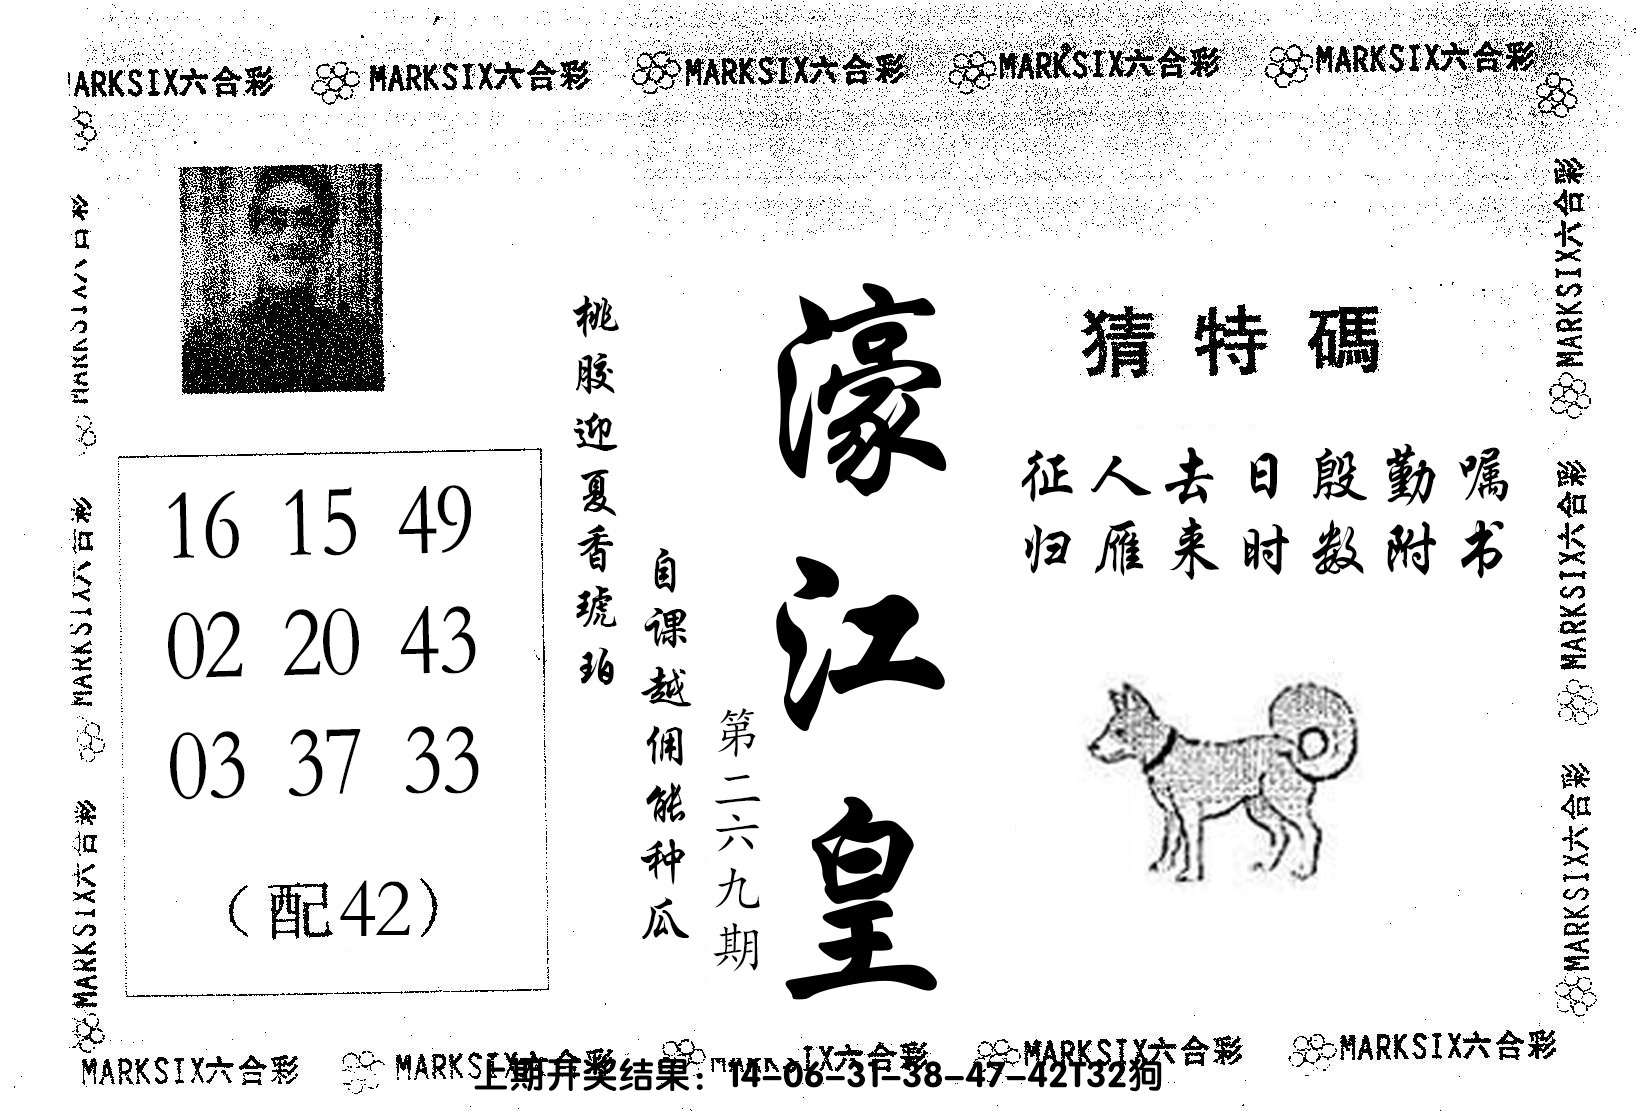 MARKSIX六合彩 MARKSIX六合彩 MARKSIX六合彩 MARKSIX六合彩 MARKSIX六合彩
猜特碼
征人去日殷勤嘱
归雁来时数附书
濠江皇
第二六九期
自课越佣能种瓜
桃胶迎夏香琥珀
16 15 49
02 20 43
03 37 33
（配42）
MARKSIX六合彩
MARKSIX六合彩
MARKSIX六合彩
MARKSIX六合彩
MARKSIX六合彩
MARKSIX六合彩
MARKSIX六合彩 MARKSIX六合彩 MARKSIX六合彩 MARKSIX六合彩 MARKSIX六合彩
上期开奖结果：14-06-31-38-47-42T32狗